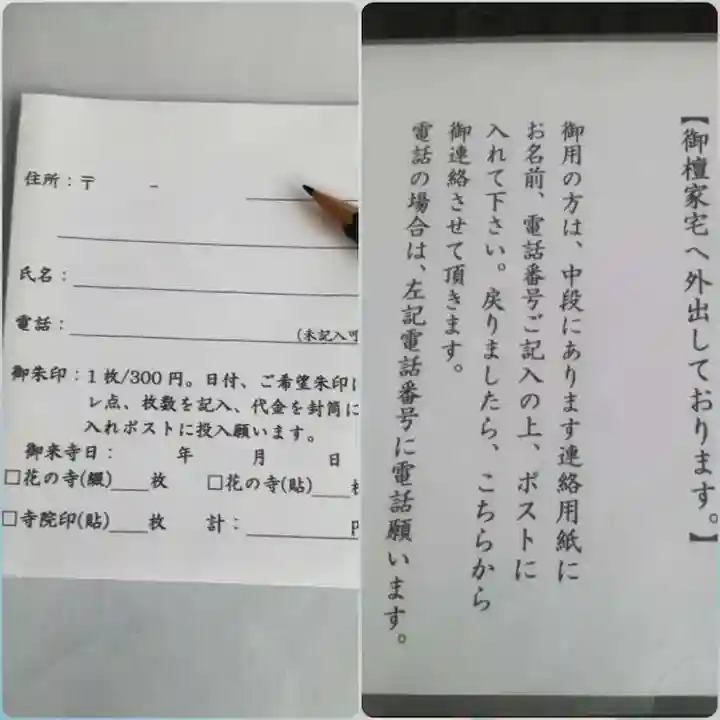 住所：〒　　－
氏名：
電話：
(未記入可
御朱印：1枚/300円。日付、ご希望朱印に
レ点、枚数を記入、代金を封筒に
入れポストに投入願います。
御来寺日：　年　月　日
□花の寺(綴)　枚　□花の寺(貼)　枚
□寺院印(貼)　枚　計：　円
【御檀家宅へ外出しております。】
御用の方は、中段にあります連絡用紙に
お名前、電話番号ご記入の上、ポストに
入れて下さい。戻りましたら、こちらから
御連絡させて頂きます。
電話の場合は、左記電話番号に電話願います。